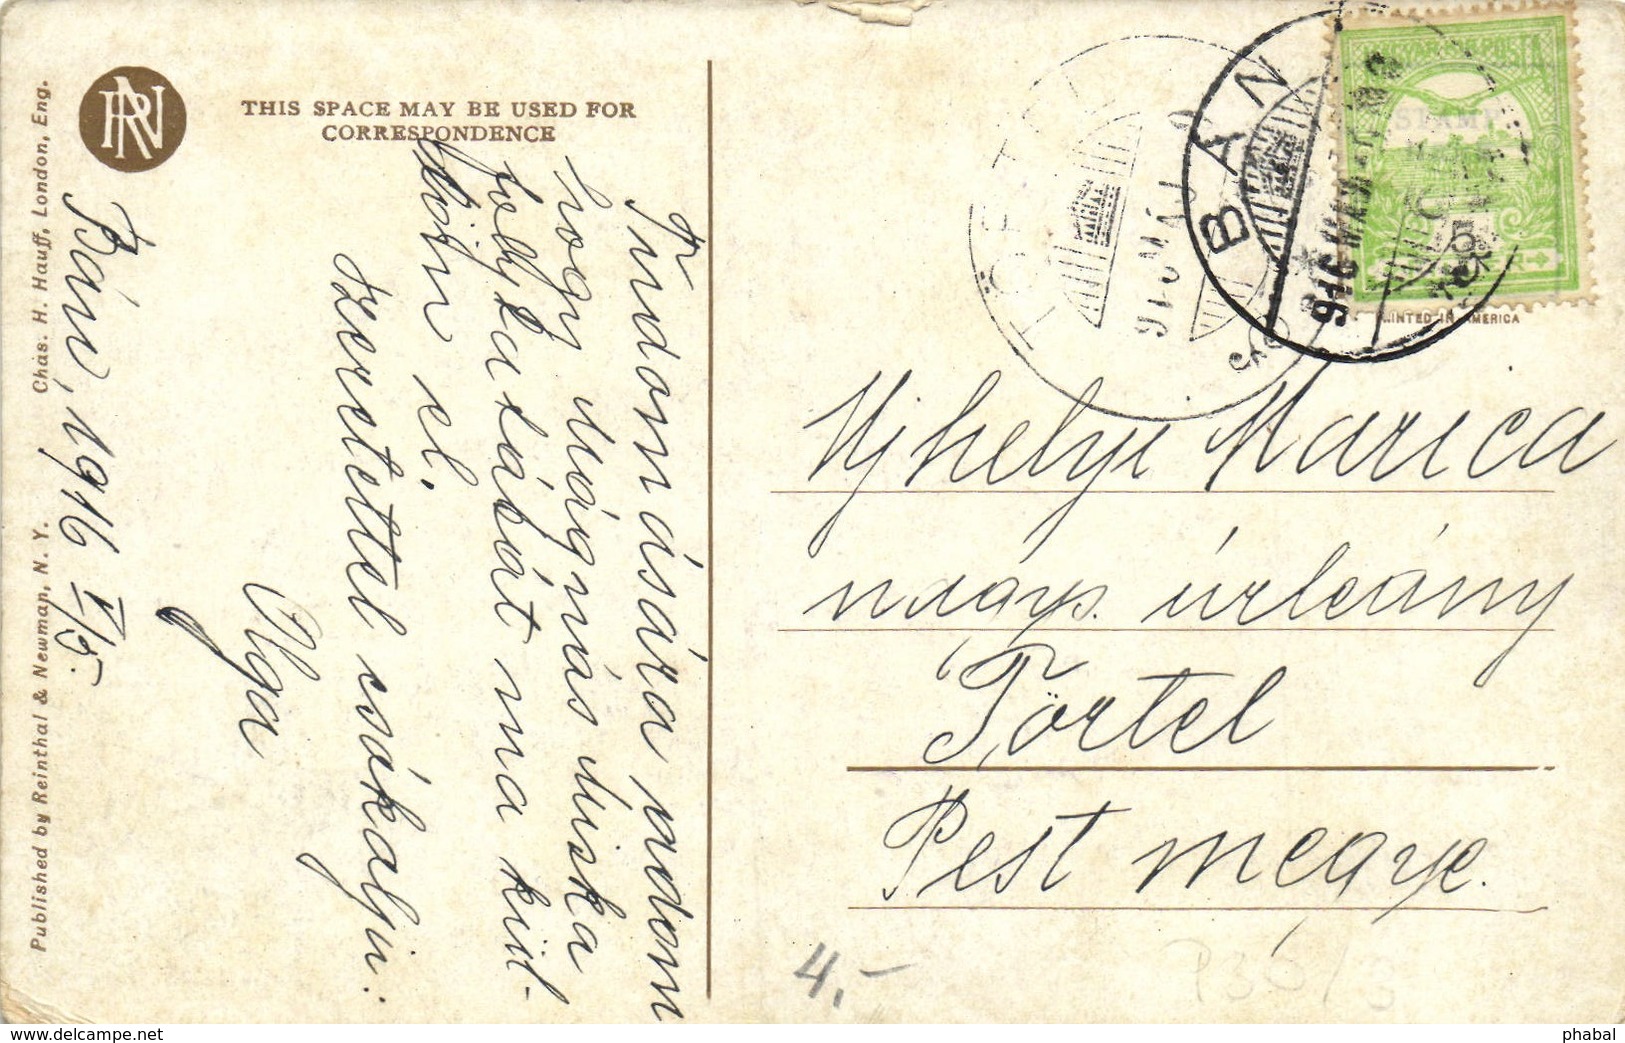 THIS SPACE MAY BE USED FOR
CORRESPONDENCE
Chas. H. Hauff, London, Eng.
Published by Reinthal & Newman, N. Y.
Bán, 1916 V/5.
Tudomására adom
hogy
ma küld-
tem el.
Szeretettel csókolja:
Olga
TÖRTEL
916 MÁJ
BÁN
916 MÁJ
MAGYAR KIR. POSTA
STAMP
PRINTED IN AMERICA
Ujhelyi Marica
nags. úrleány
Törtel
Pest megye.
4.-
delcampe.net
phabal